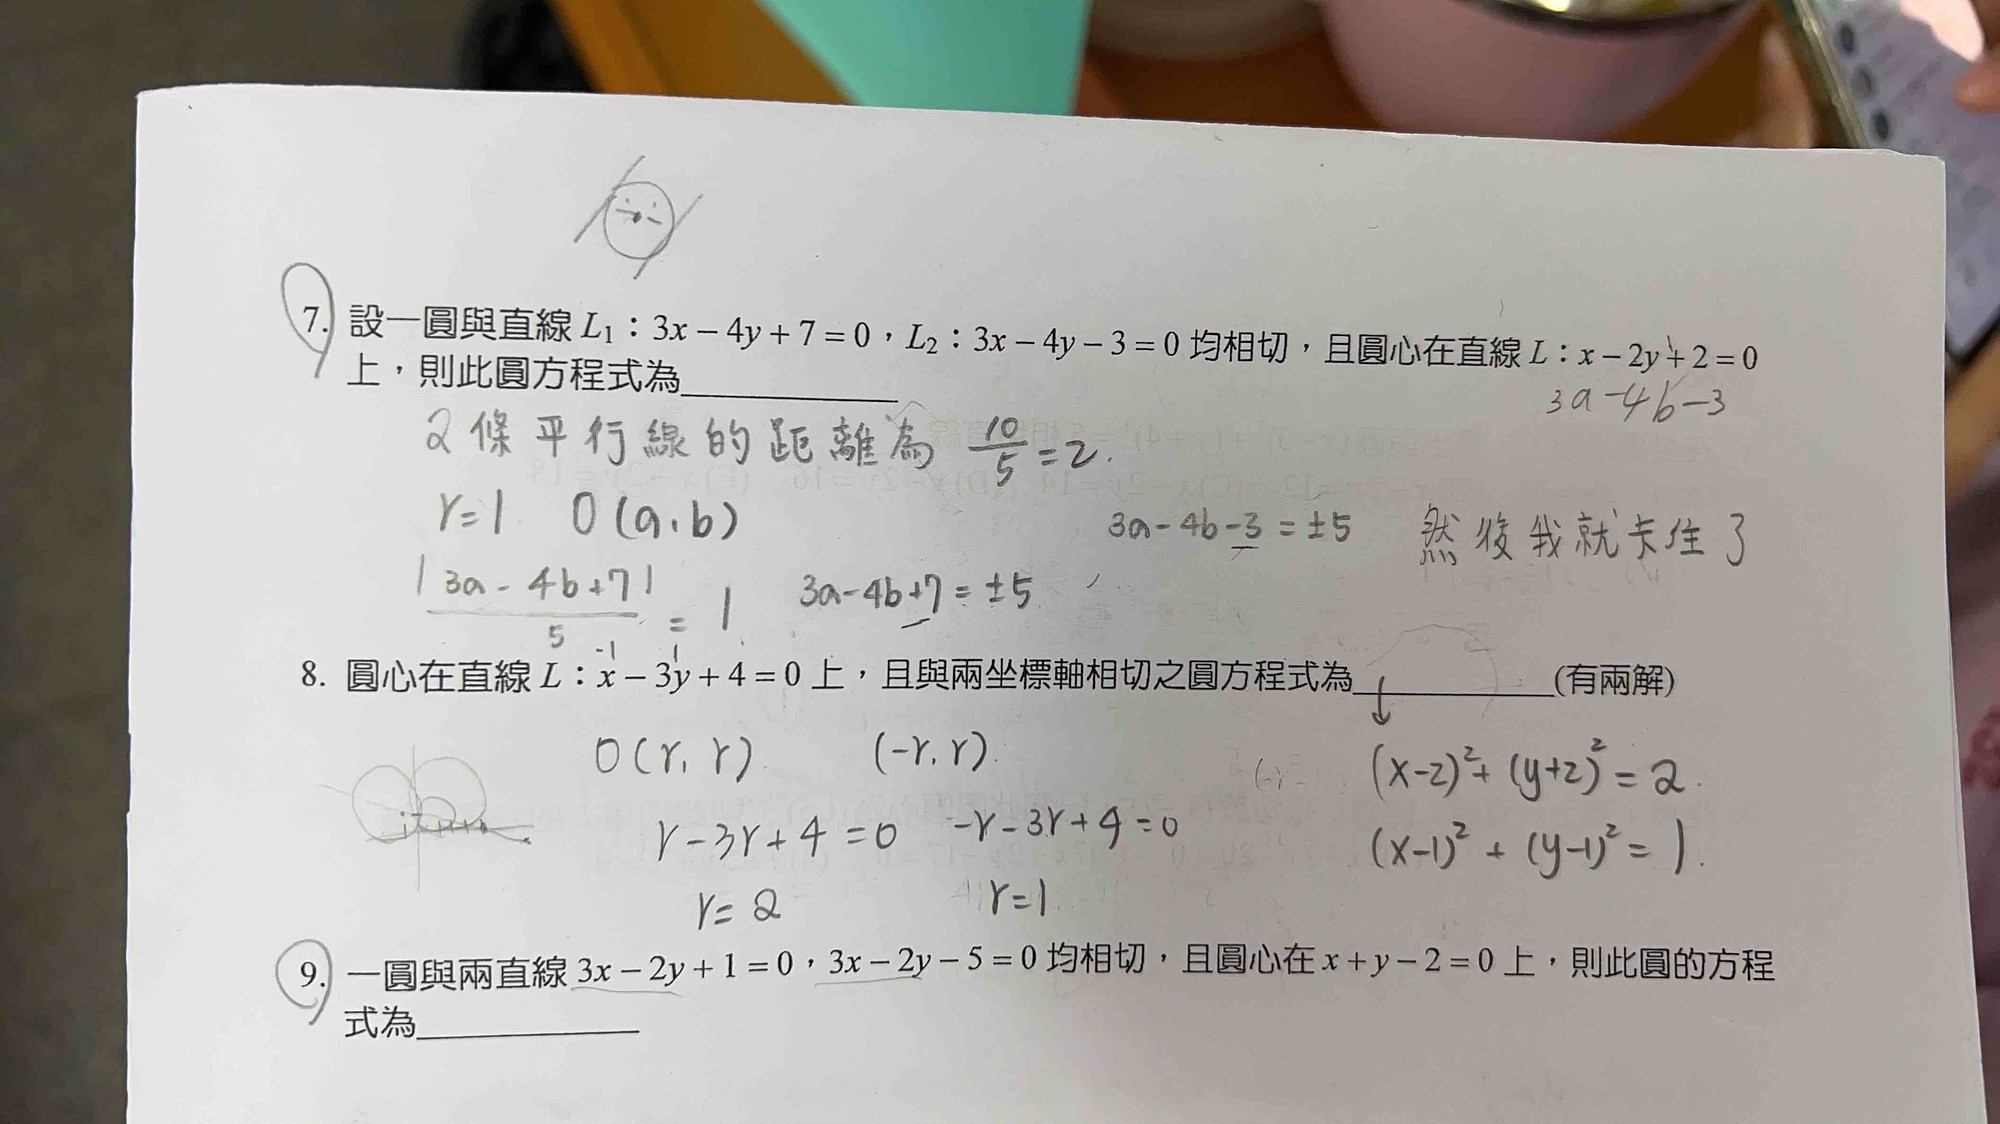 7. 設一圓與直線 L₁：3x－4y＋7＝0，L₂：3x－4y－3＝0 均相切，且圓心在直線 L：x－2y＋2＝0
上，則此圓方程式為__________
3a-4b-3
2條平行線的距離為 10/5 = 2.
r=1 O(a,b)
3a-4b-3=±5 然後我就卡住了
|3a-4b+7|/5 = 1 3a-4b+7=±5
-1 1
8. 圓心在直線 L：x－3y＋4＝0 上，且與兩坐標軸相切之圓方程式為__________(有兩解)
O(r,r) (-r,r) (x-2)²+(y+2)²=2.
r-3r+4=0 -r-3r+4=0 (x-1)²+(y-1)²=1.
r=2 r=1
9. 一圓與兩直線 3x－2y＋1＝0，3x－2y－5＝0 均相切，且圓心在 x＋y－2＝0 上，則此圓的方程
式為__________